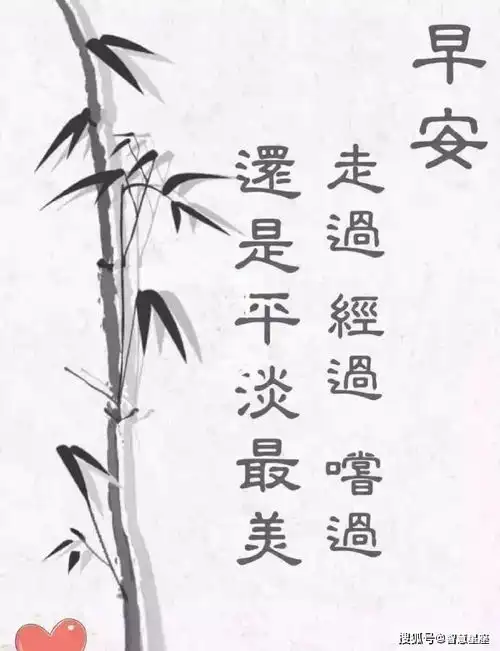 早安
走過 經過 嚐過
還是平淡最美
搜狐号@智慧星座